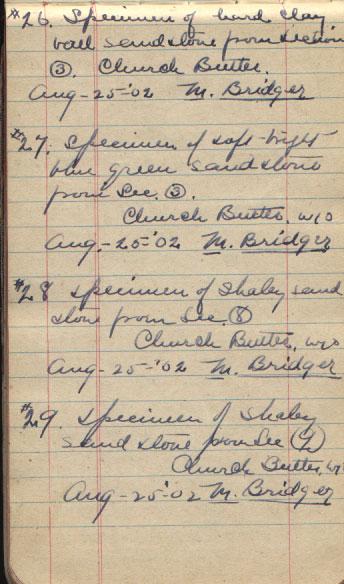 #26. Specimen of hard clay
ball sandstone from section
③. Church Butte.
Aug-25-'02 M. Bridger
#27. Specimen of soft-bright
blue green sandstone
from Sec. ③.
Church Butte, wyo
Aug.-25-'02 M. Bridger
#28 Specimen of Shaley sand
stone from Sec. ⑧
Church Butte, wyo
Aug-25-'02 M. Bridger
#29. Specimen of Shaley
Sandstone from Sec
Church Butte, wy
Aug-25-02 M. Bridger